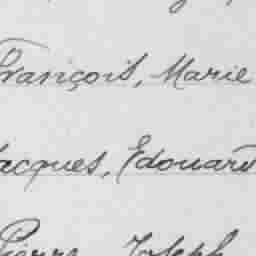 François, Marie
Jacques, Edouard
Pierre, Joseph